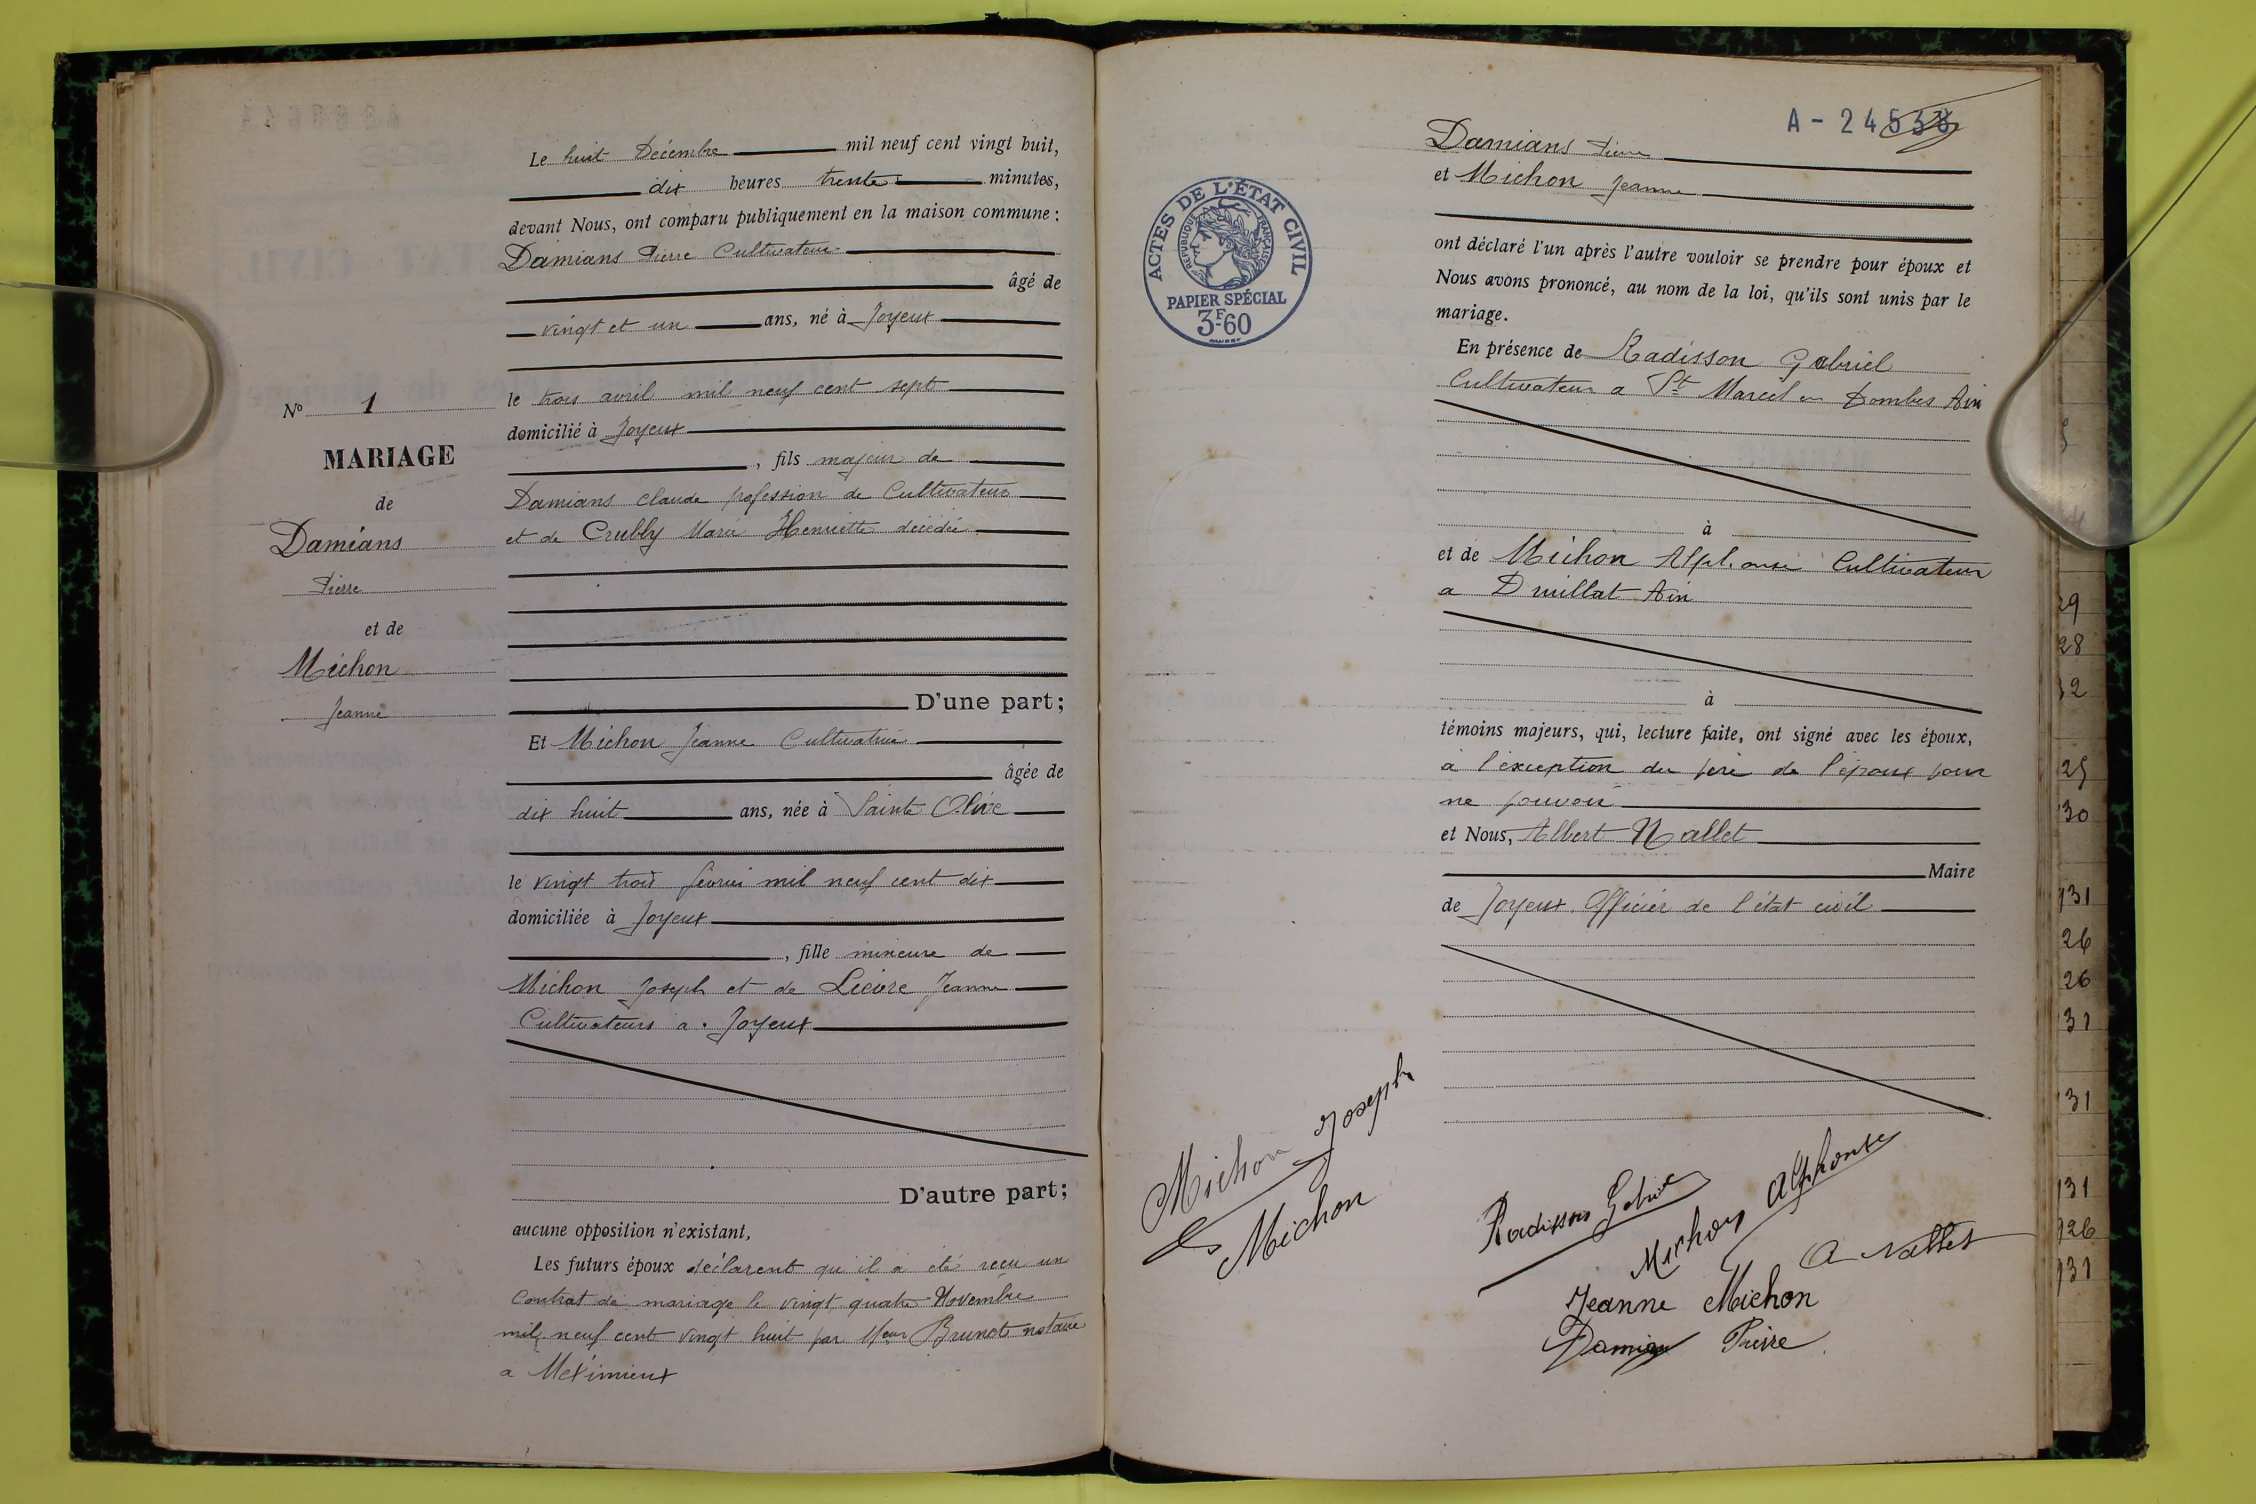 Le huit Décembre mil neuf cent vingt huit,
dix heures trente minutes,
devant Nous, ont comparu publiquement en la maison commune :
Damians Pierre Cultivateur
âgé de
vingt et un ans, né à Joyeux
le trois avril mil neuf cent sept
domicilié à Joyeux
, fils majeur de
Damians Claude profession de Cultivateur
et de Crubly Marie Henriette décédée
D'une part;
Et Michon Jeanne Cultivatrice
âgée de
dix huit ans, née à Sainte Olive
le vingt trois février mil neuf cent dix
domiciliée à Joyeux
, fille mineure de
Michon Joseph et de Lièvre Jeanne
Cultivateurs a Joyeux
D'autre part;
aucune opposition n'existant,
Les futurs époux déclarent qu'il a été reçu un
contrat de mariage le vingt quatre Novembre
mil neuf cent vingt huit par Brunot notaire
a Meximieux
N° 1
MARIAGE
de
Damians
Pierre
et de
Michon
Jeanne
A - 24538
ACTES DE L'ÉTAT CIVIL
RÉPUBLIQUE FRANÇAISE
PAPIER SPÉCIAL
3F60
Damians Pierre
et Michon Jeanne
ont déclaré l'un après l'autre vouloir se prendre pour époux et
Nous avons prononcé, au nom de la loi, qu'ils sont unis par le
mariage.
En présence de Radisson Gabriel
Cultivateur a St Marcel en Dombes Ain
à
et de Michon Alphonse Cultivateur
a Druillat Ain
à
témoins majeurs, qui, lecture faite, ont signé avec les époux,
a l'exception du père de l'époux pour
ne pouvoir
et Nous, Albert Nallet
Maire
de Joyeux Officier de l'état civil
Michon Joseph
Michon
Radisson Gabriel
Michon Alphonse
A Nallet
Jeanne Michon
Damians Pierre
29
28
32
25
30
131
26
26
31
31
131
126
131